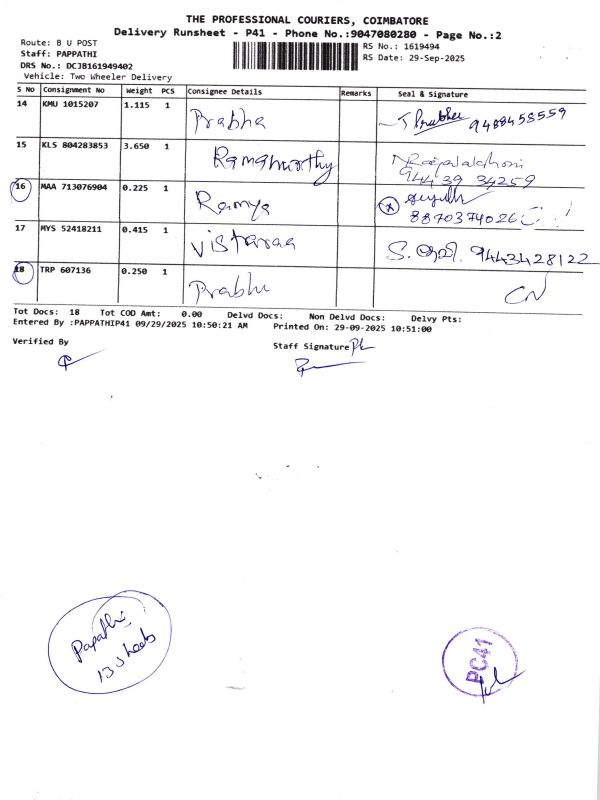 THE PROFESSIONAL COURIERS, COIMBATORE
Delivery Runsheet - P41 - Phone No.:9047080280 - Page No.:2
Route: B U POST
Staff: PAPPATHI
DRS No.: DCJB161949402
Vehicle: Two Wheeler Delivery
RS No.: 1619494
RS Date: 29-Sep-2025
S No Consignment No Weight PCS Consignee Details Remarks Seal & Signature
14 KMU 1015207 1.115 1 Prabha 9488458559
15 KLS 804283853 3.650 1 Ramamurthy
94439 34259
16 MAA 713076904 0.225 1 Ramya
8870374026
17 MYS 52418211 0.415 1 Vistaraa S. 9443428122
18 TRP 607136 0.250 1 Prabhu CN
Tot Docs: 18 Tot COD Amt: 0.00 Delvd Docs: Non Delvd Docs: Delvy Pts:
Entered By :PAPPATHIP41 09/29/2025 10:50:21 AM Printed On: 29-09-2025 10:51:00
Verified By Staff Signature
Papathi
13 sheets
PC41